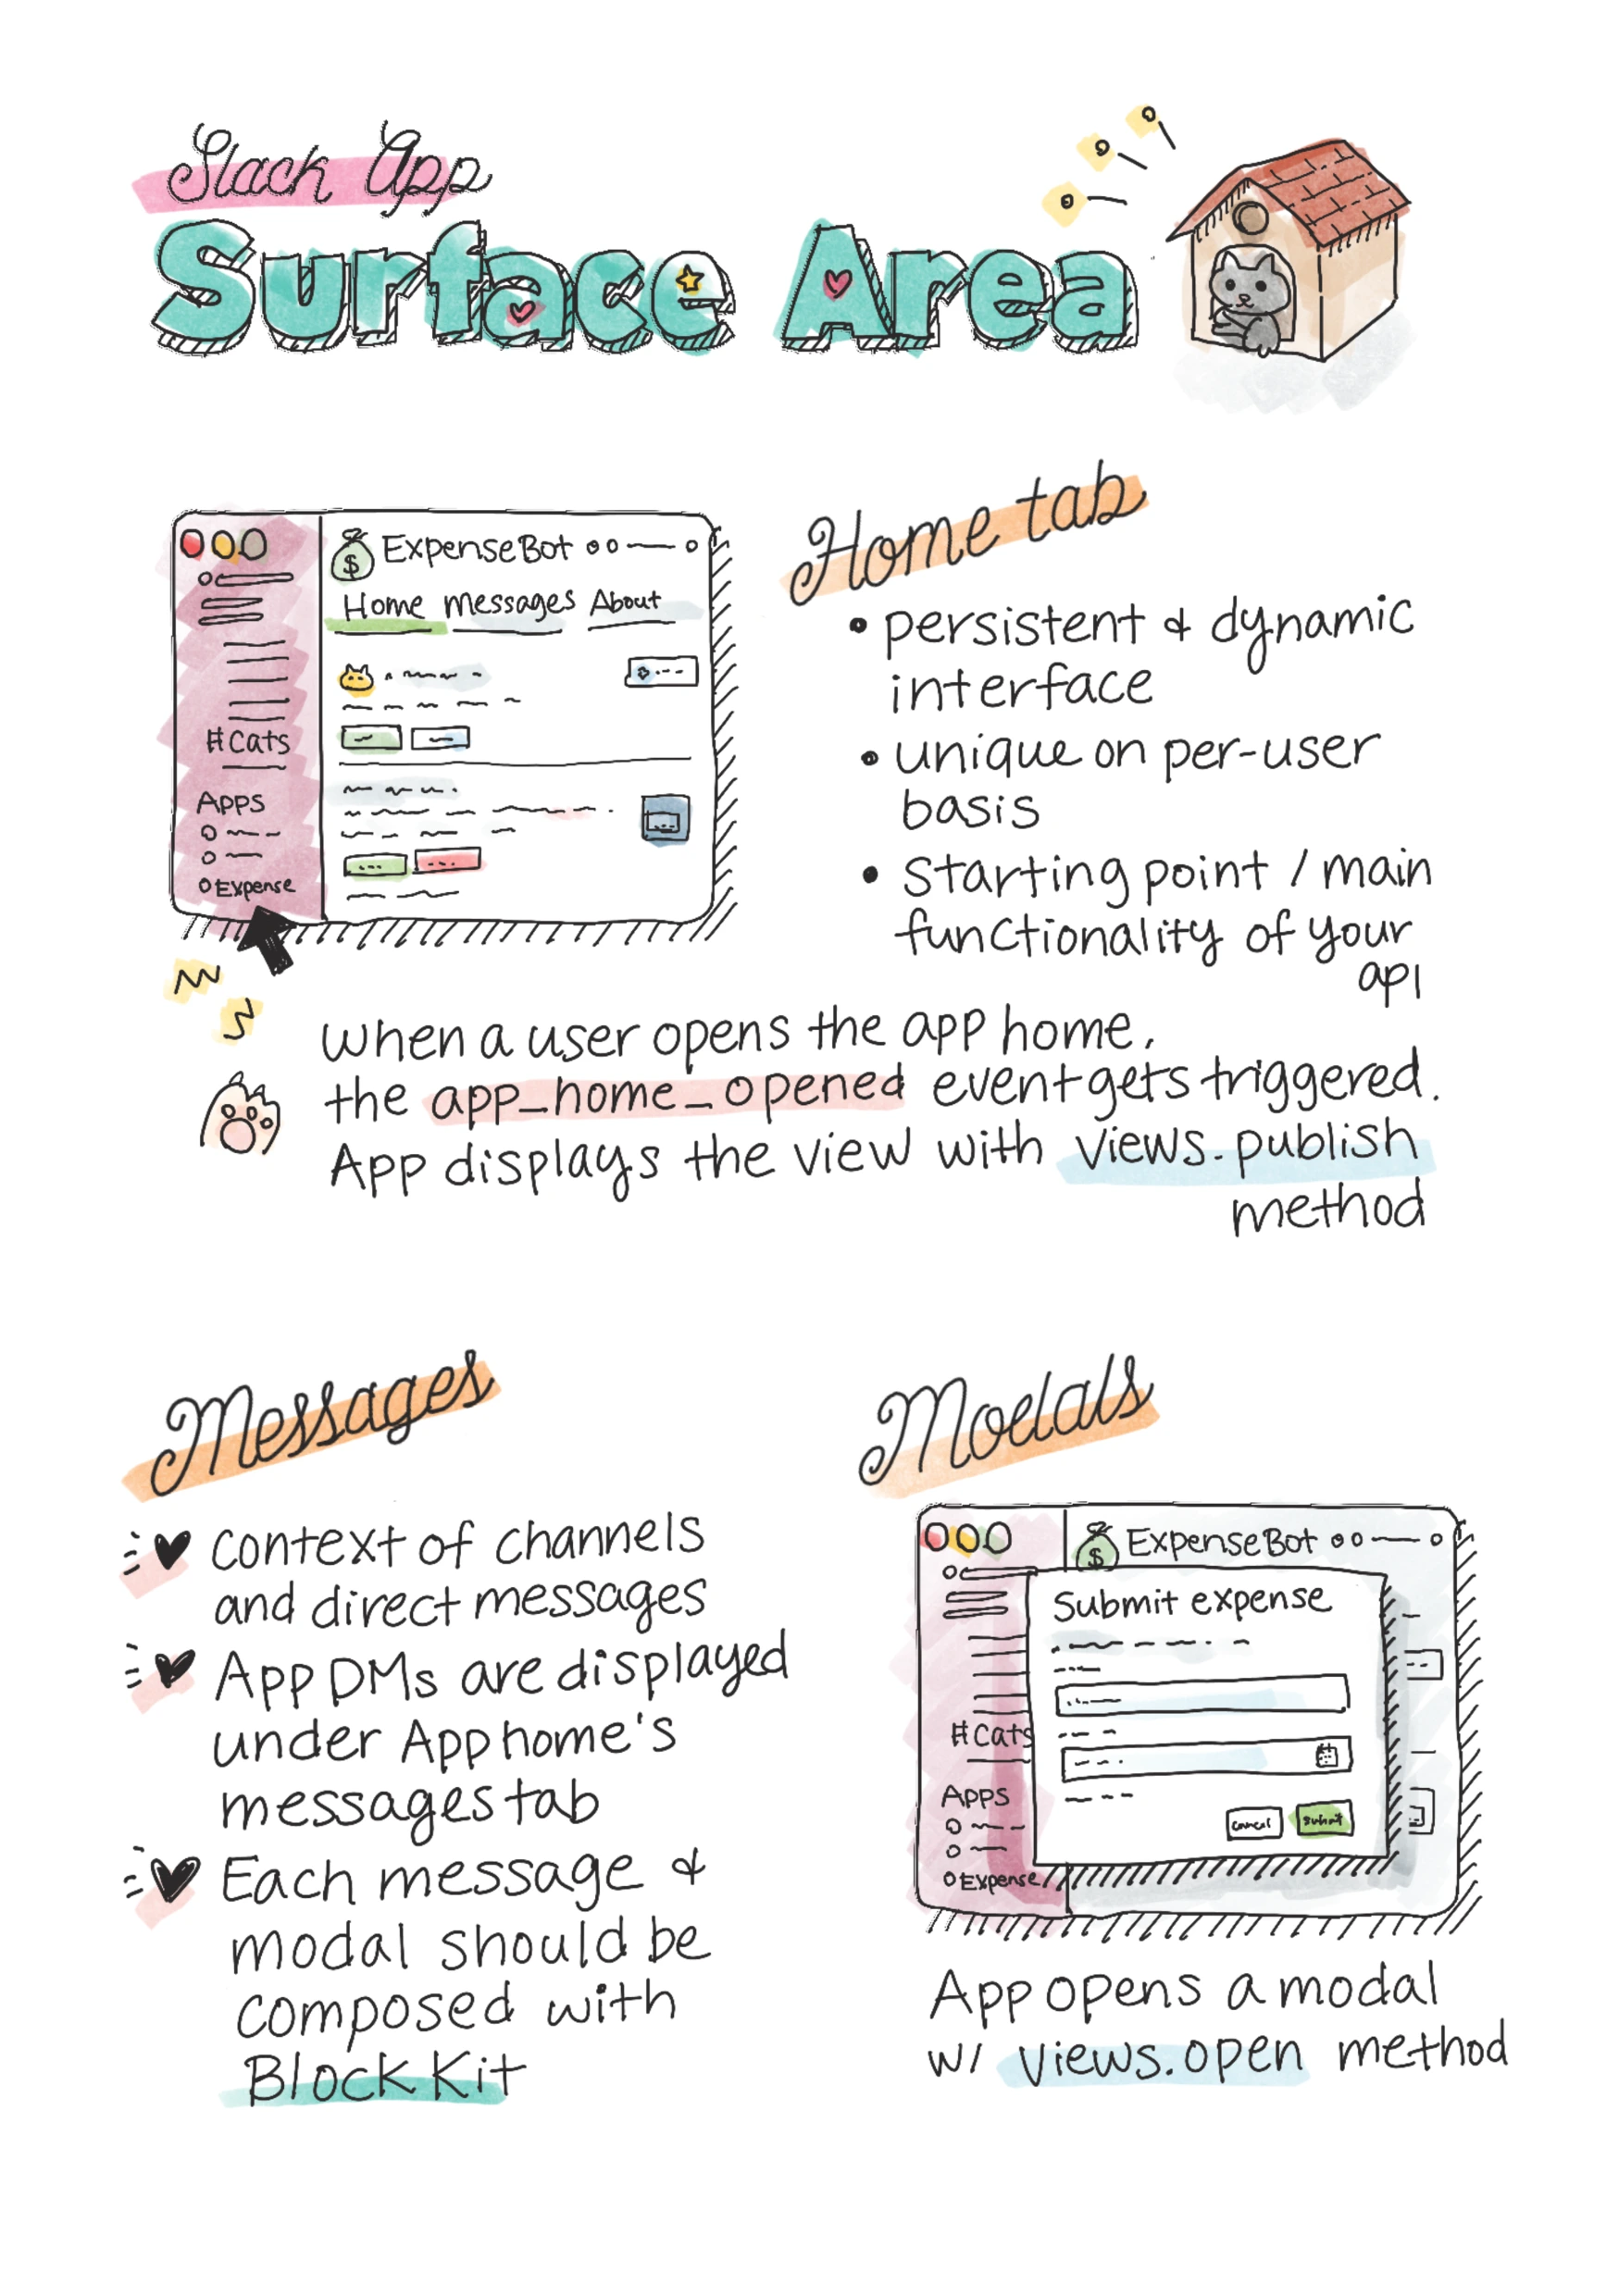 Slack App
Surface Area
ExpenseBot
Home Messages About
#Cats
Apps
Expense
Home tab
• persistent & dynamic
interface
• unique on per-user
basis
• starting point / main
functionality of your
api
When a user opens the app home,
the app_home_opened event gets triggered.
App displays the view with views.publish
method
Messages
Context of channels
and direct messages
App DMs are displayed
under App home's
messages tab
Each message &
modal should be
composed with
Block Kit
Modals
ExpenseBot
Submit expense
#Cats
Apps
Expense
cancel
submit
App opens a modal
w/ views.open method